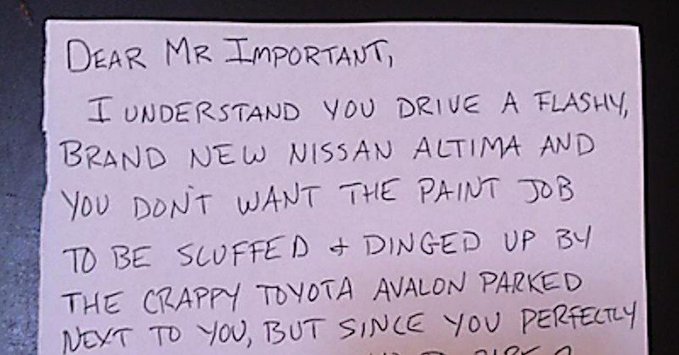 DEAR MR IMPORTANT,
I UNDERSTAND YOU DRIVE A FLASHY,
BRAND NEW NISSAN ALTIMA AND
YOU DON'T WANT THE PAINT JOB
TO BE SCUFFED & DINGED UP BY
THE CRAPPY TOYOTA AVALON PARKED
NEXT TO YOU, BUT SINCE YOU PERFECTLY